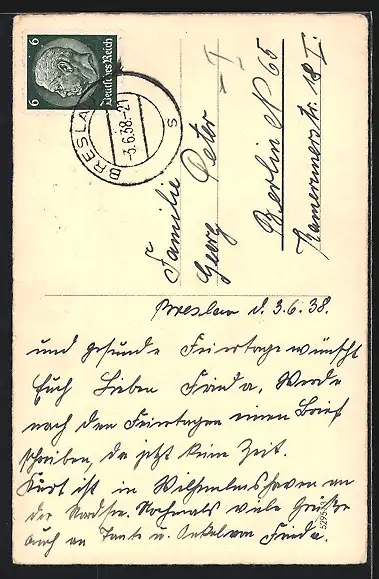 6 Deutsches Reich 6
BRESLAU
-3.6.38.-21
s
Familie
Georg Peter
Berlin N 65
Kamerunerstr. 18 I.
Breslau d. 3.6.38.
und gesunde Feiertage wünscht
Euch Lieben Frieda. Werde
nach den Feiertagen einen Brief
schreiben, da jetzt keine Zeit.
Kurt ist in Wilhelmshaven an
der Nordsee. Nochmals viele Grüße
auch an Tante u. Onkel von Frieda.